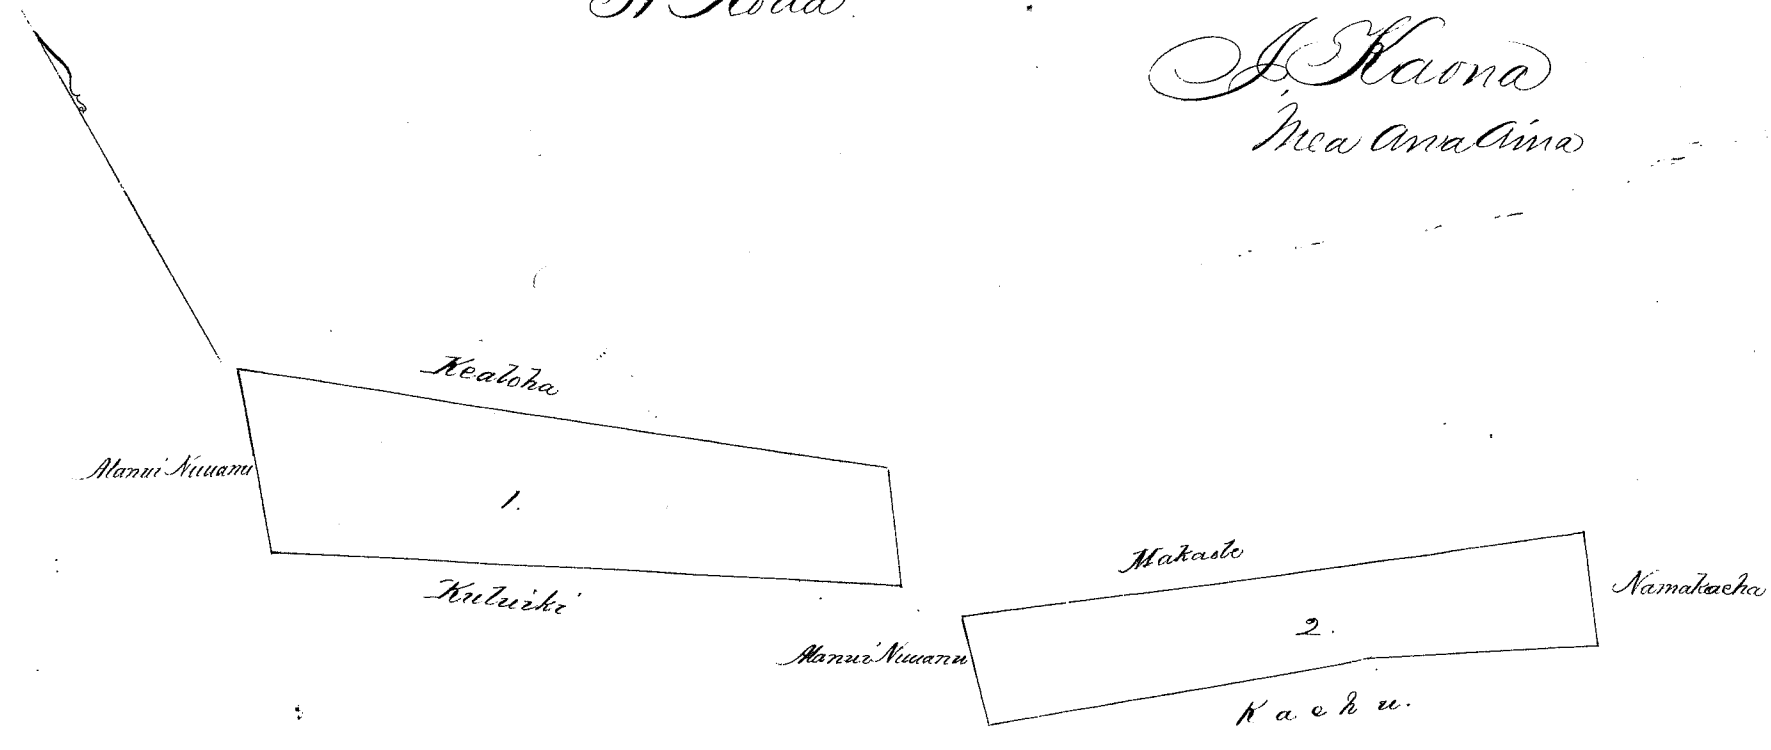 J. Kaona
Mea Ana Aina
Kealoha
Alanui Nuuanu
1.
Kuluiki
Makaole
Namakaeha
2.
Alanui Nuuanu
Kaehu.